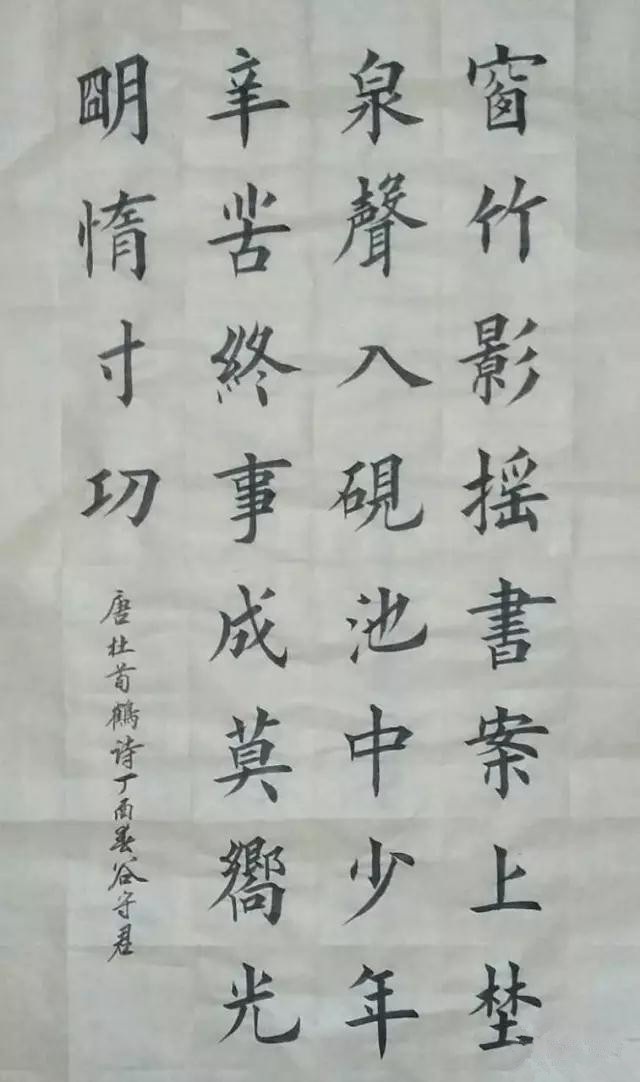 窗竹影摇書案上埜
泉聲入硯池中少年
辛苦終事成莫嚮光
明惰寸功
唐杜荀鶴詩丁酉春谷守君